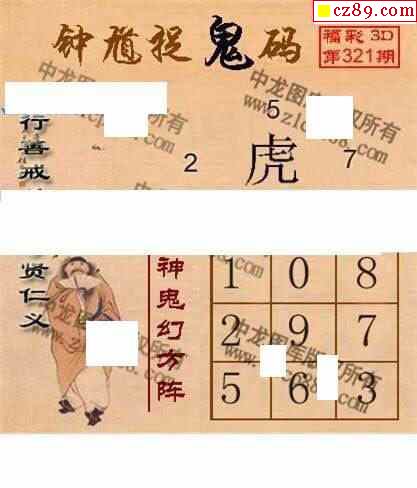 cz89.com
钟馗捉鬼码
福彩3D
第321期
中龙图库版权所有
行善戒
5
虎
2
7
贤仁义
神鬼幻方阵
1 0 8
2 9 7
5 6 3
中龙图库版权所有